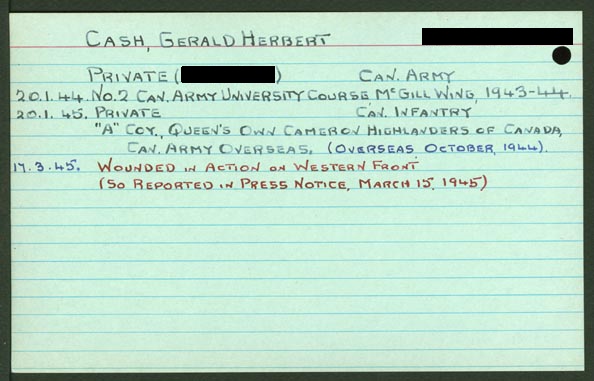 CASH, GERALD HERBERT
PRIVATE ( ) CAN. ARMY
20.1.44. No.2 CAN. ARMY UNIVERSITY COURSE McGILL WING, 1943-44.
20.1.45. PRIVATE CAN. INFANTRY
"A" COY., QUEEN'S OWN CAMERON HIGHLANDERS OF CANADA,
CAN. ARMY OVERSEAS. (OVERSEAS OCTOBER, 1944).
17.3.45. WOUNDED IN ACTION ON WESTERN FRONT
(SO REPORTED IN PRESS NOTICE, MARCH 15, 1945)